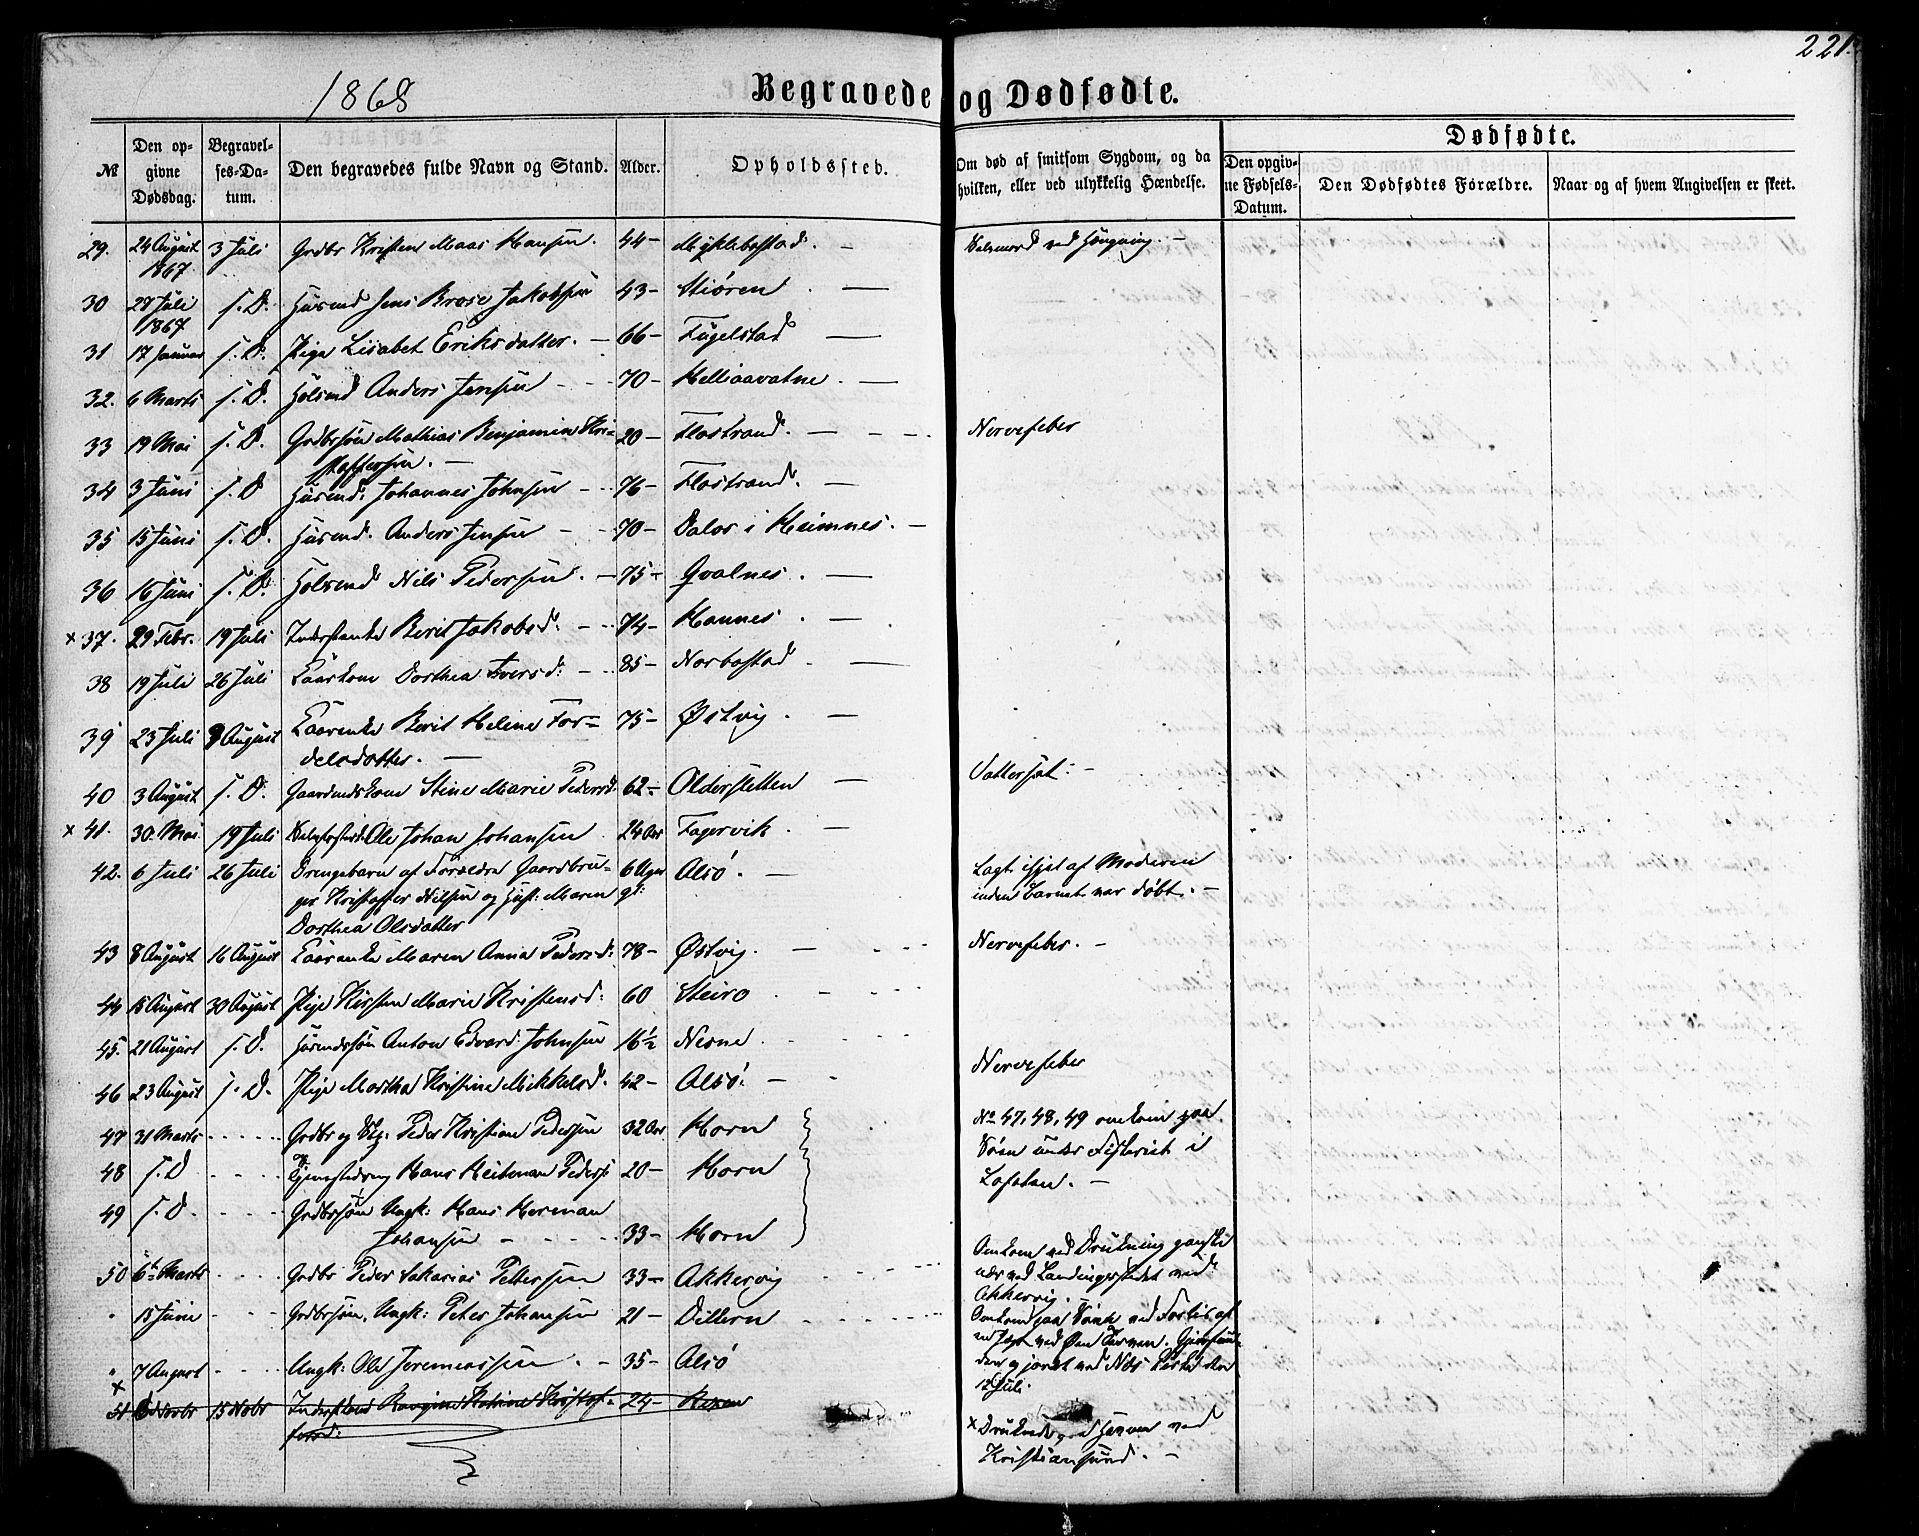 221.
1868
Begravede og Dødfødte.
Dødfødte.
№
Den opgivne Dødsdag.
Begravelses-Datum.
Den begravedes fulde Navn og Stand.
Alder.
Opholdssted.
Om død af smitsom Sygdom, og da hvilken, eller ved ulykkelig Hændelse.
Den opgivne Fødsels-Datum.
Den Dødfødtes Forældre.
Naar og af hvem Angivelsen er skeet.
29. 24 August 1867 3 Juli Grdbr Kristen Maas Hansen. 44 – – Selvmord ved Hængning. –
30 29 Juli 1867 s. D. Huusmd Jens Brose Jakobsen 43 – Stiören –
31 17 Januar s. D. Pige Lisabet Eriksdatter. – 66 – Fugelstad –
32. 6 Marts s. D. Anders Jensen – – 70 – Helliaavatne. –
33 19 Mai s. D. Grdbrsøn Mathias Benjamin Kri-
stoffersen. – 20 – Flostrand. – Nervefeber
34 3 Juni s. D Huusmd: Johannes Johnsen – – 76 – Flostrand. –
35 15 Juni s. D. Huusmd. Anders Jensen – – 70 – Dalos i Heimnes. –
36 16 Juni s. D. Nils Pedersen. – 75 – Qvalnes. –
× 37. 29 Febr. 19 Juli Inderstenke Berit Jakobsd. – – 74 – Hannes. –
38 19 Juli 26 Juli Kaarkone Dorthea Iversd: – – 85 – Norbostad. –
39 23 Juli 9 August Kaarenke Berit Helene For=
delsdatter. – 75 – Østvig. –
40 3 August s. D. Gaardmdskone Stine Marie Pedersd. 62 – Oldersletten – Vattersot: –
× 41. 30. Mai 19 Juli Ole Johan Johansen 24 Aar Fagervik. –
42. 6 Juli 26 Juli Drengebarn af Forældre Gaardbru-
ger Kristoffer Nilsen og Hust: Maren
Dorthea Olsdatter 6 Uger gl: Alsö. – Lagt ihjel af Moderen
inden Barnet var døbt. –
43 8 August 16 August Kaarenke Maren Anna Pedersd: 78 – Østvig. – Nervefeber. –
44 15 August 30 August Pige Kirsten Marie Kristensd: 60 Steiro
45. 21 August s. D. Huusmdssøn Anton Edvard Johnsen 16½ Nesne
46 23 August s. D. Pige Martha Kristine Mikkelsd. 42 – Alsö. – Nervefeber
47 31 Marts Grdbr og Peder Kristian Pedersen 32 Aar Horn № 47, 48, 49 omkom paa
48 s. D Hans Heitman Peders: 20 – Horn Søen under Fiskeriet i
49 s. D. Grdbrsøn Ungk: Hans Herman
Johansen – – 33 – Horn Lofoten. –
50 6te Marts Grdbr Peder Sakarias Pettersen 33 – Akkervig Omkom ved Drukning ganske
nær ved Landingsstedet ved
Akkervig. –
" 15 Juni Grdbrsøn, Ungk: Peter Johansen 21 – Dillern Omkom paa Søen ved Forlis af
en Jægt ved Øen
og jordet ved Næs Kirke den
12 Juli.
" × 7 August Ungk: Ole Jeremiassen. – 35 – Alsö
51 6 Novbr 15 Nobr Katrine Kristof=
fersd: 24 –
× Druknede paa Havnen ved
Kristiansund. –